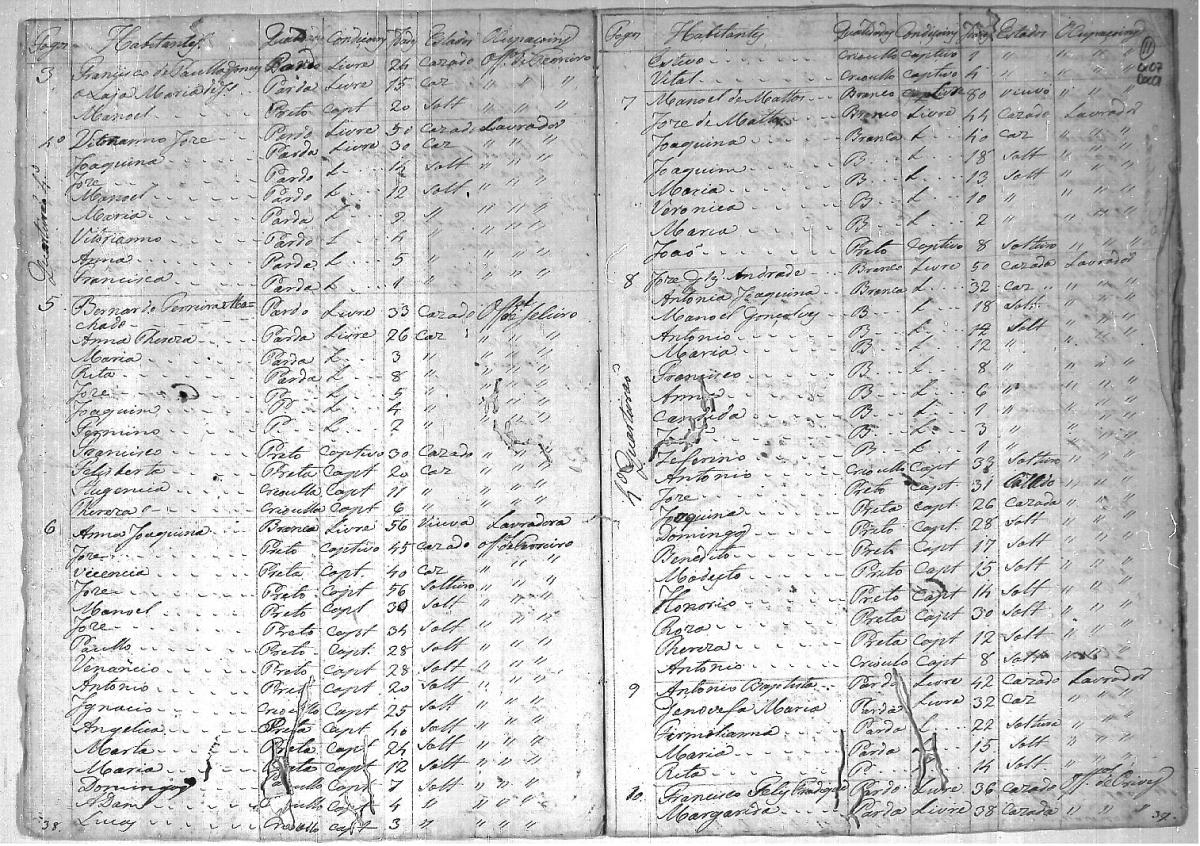 Fogos Habitantes Qualidades Condiçoins Idades Estados Ocupaçoins
3 Francisco de Paulla Pardo Livre 24 Cazado Off. de Ferreiro
Maria Parda Livre 15 Caz " " "
Manoel Preto Capt 20 Solt " " "
Quarteirão 4º
4º Joze Pardo Livre 50 Cazado Lavrador
Joaquina Parda Livre 30 Caz " " "
Joze Pardo L 14 Solt " " "
Manoel Pardo L 12 Solt " " "
Maria Parda L 9 " " " "
Vitorianno Pardo L " " " "
Anna Parda L 5 " " " "
Francisca Parda L 1 " " " "
5 Bernardo Ferreira Ma=
chado Pardo Livre 33 Cazado Off.al de Seleiro
Anna Thereza Parda Livre 26 Caz " " "
Maria Parda L 3 " " " "
Rita Parda L 8 " " " "
Joze P L 5 " " " "
Joaquim P L 4 " " " "
Fermino P L 2 " " " "
Francisco Preto Captivo 30 Cazado " " "
Felisberta Preta Capt 20 Caz " " "
Eugenia Crioulla Capt 11 " " " "
Thereza Crioulla Capt 6 " " " "
6 Anna Joaquina Branca Livre 56 Viuva Lavradora
Joze Preto Captivo 45 Cazado off. de Ferreiro
Vicencia Preta Capt. 40 Caz " " "
Joze Preto Capt 56 Solteiro " " "
Manoel Preto Capt 30 Solt " " "
Joze Preto Capt 34 Solt " " "
Paullo Preto Capt. 28 Solt " " "
Venancio Preto Capt 28 Solt " " "
Antonio Preto Capt 20 Solt " " "
Ignacio Crioullo Capt 25 Solt " " "
Angelica Preta Capt 40 Solt " " "
Marta Preta Capt 24 Solt " " "
Maria Preta Capt 12 Solt " " "
Domingos Capt 7 Solt " " "
Adam Capt 4 " " " "
Lucas Crioullo Capt 3 " " " "
38.
Fogos Habitantes Qualidades Condiçoins Idades Estados Ocupaçoins
11
Estevo Crioullo Captivo 1 " " " "
Vital Crioullo Captivo 4 " " " "
7 Manoel de Mattos Branco Livre 80 Viuvo " " "
Joze de Mattos Branco Livre 44 Cazado Lavrador
Joaquina Branca L 40 Caz " " "
Joaquim B L 18 Solt " " "
Maria B L 13 Solt " " "
Veronica B L 10 " " " "
Maria B L 2 " " " "
João Preto Captivo 8 Solteiro " " "
8 Joze Glz Andrade Branco Livre 50 Cazado Lavrador
Antonia Joaquina Branca L 32 Caz " " "
Manoel Gonçalves B L 18 Solt " " "
Antonio B L 14 Solt " " "
Maria B L 12 " " " "
Francisco B L 8 " " " "
Anna B L 6 " " " "
Candida B L 1 " " " "
B L 3 " " " "
4º Quarteirão
Zeferino B L 1 " " " "
Antonio Crioullo Capt 33 Solteiro " " "
Joze Preto Capt 31 " " "
Joaquina Preta Capt 26 Cazada " " "
Domingos Preto Capt. 28 Solt " " "
Benedito Preto Capt 17 Solt " " "
Modesto Preto Capt 15 Solt " " "
Honorio Preto Capt 14 Solt " " "
Roza Preta Capt 30 Solt " " "
Thereza Preta Capt 12 Solt " " "
Antonio Crioullo Capt 8 Solt " " "
9 Antonio Baptista Pardo Livre 42 Cazado Lavrador
Genovefa Maria Parda Livre 32 Caz " " "
Firmidianna Parda L 22 Solteira " " "
Maria Parda 15 Solt " " "
Rita P L 14 Solt " " "
10. Francisco Pardo Livre 36 Cazado Off.al de
Margarida Parda Livre 38 Cazada " "